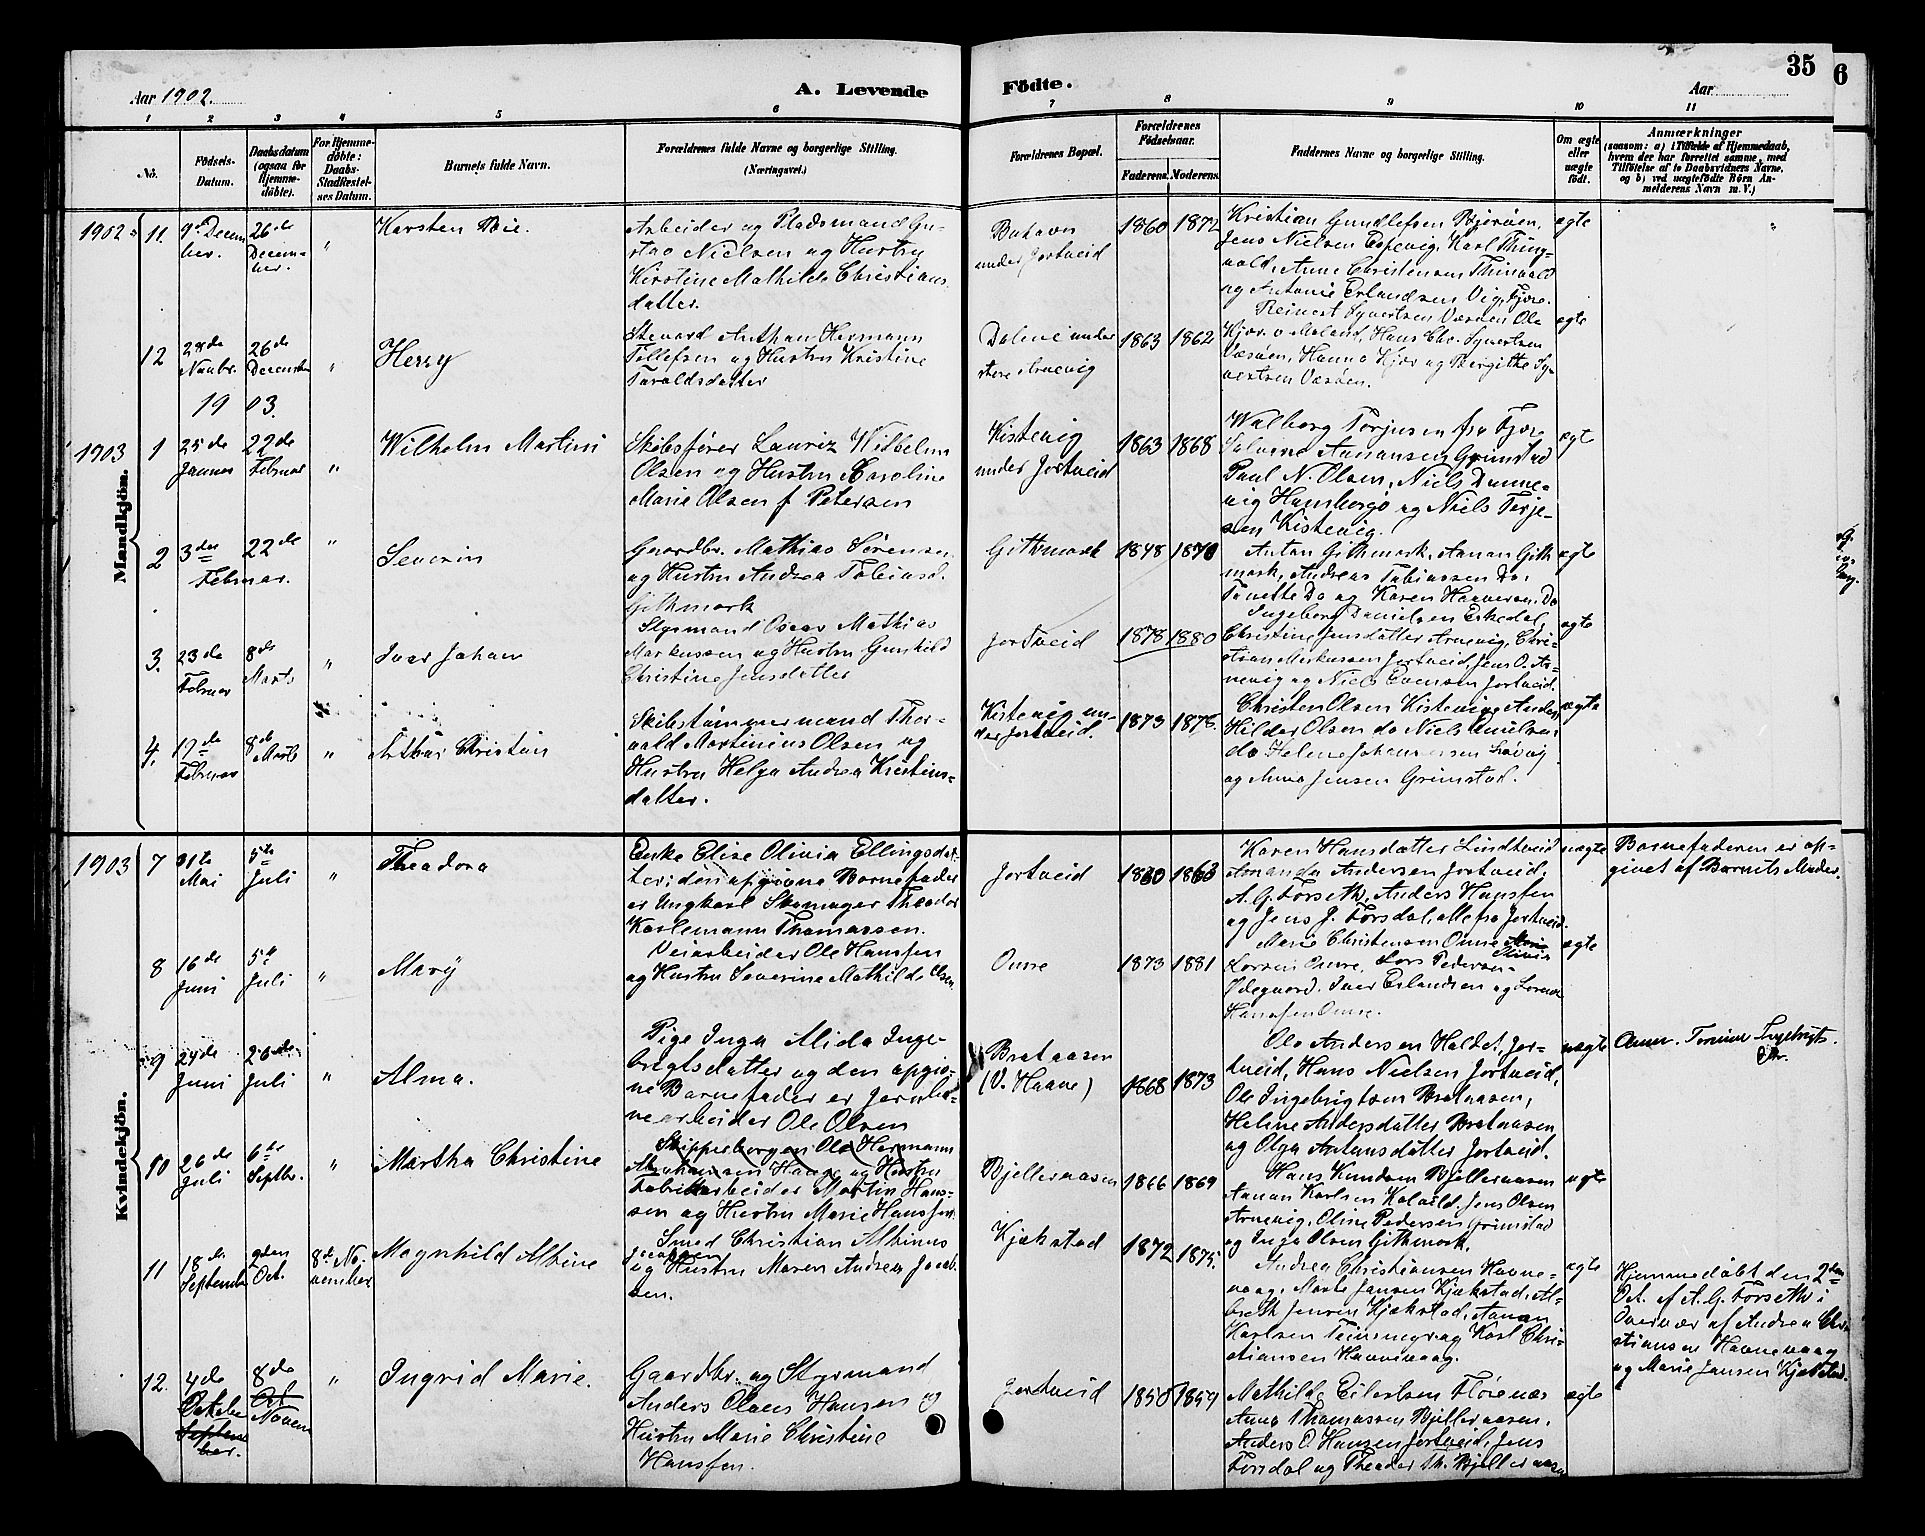 35
6
Aar 1902.
A. Levende
Födte.
Aar
1 2 3 4 5 6 7 8 9 10 11
No.
Födsels-Datum.
Daabsdatum (ogsaa for Hjemme-döbte).
For Hjemme-döbte: Daabs-Stadfæstel-ses Datum.
Barnets fulde Navn.
Forældrenes fulde Navne og borgerlige Stilling.
(Næringsvei.)
Forældrenes Bopæl.
Forældrenes Födselsaar.
Faderens. Moderens.
Faddernes Navne og borgerlige Stilling.
Om ægte eller uægte födt.
Anmærkninger
(saasom: a) i Tilfælde af Hjemmedaab,
hvem der har forrettet samme, med
Tilföielse af to Daabsvidners Navne,
og b) ved uægtefödte Börn An-
melderens Navn m. V.)
Mandkjön.
1902
11.
9de Decem
ber.
26de
Decem-
ber.
"
Karsten Bie.
Arbeider og Pladsmand Gu-
stav Nielsen og Hustru
Kirstine Mathilde Christians
datter.
under Jortveid
1860 1872
Kristian Gundlefsen Bjerøen,
Jens Nielsen Espevig, Karl Thing-
vald, Anne Christensen Thinvald
og Antonie Erlandsen Vig, Fjære.
ægte
12
28de
Novbr.
26de
December
"
Herry
Steward Anthan Hermann
Tellefsen og Hustru Kristine
Taraldsdatter
Dalene under
store Arnevig
1863 1862
Reinert Syvertsen Væsøen Ole
Kjær v Moland, Hans Chr. Syvertsen
Væsøen, Hanna Kjær og Bergitte Sy-
vertsen Væsøen.
ægte
19 03.
1903
1
25de
Januar
22de
Februar
"
Wilhelm Martin
Skibsfører Lauriz Wilhelm
Olsen og Hustru Caroline
Marie Olsen f Petersen
Kistevig
under Jortveid
1863 1868
Walborg Torjusen fra Fjære
Aanansen Grimstad
Paul N. Olsen, Niels Danne-
vig Hamborgø og Niels Terje-
sen Kistevig.
ægt
2
3den
Februar.
22de
"
Severin
Gaardbr. Mathias Sørensen
og Hustru Andrea Tobiasd.
Githmark
Githmark
1848 1870
Antan Githmark, Aanan Gith
mark, Andreas Tobiassen Do,
Tanette Do og Karen Haaversen. Do
ægte
3.
23de
Februar
8de
Marts
"
Ivar Johan
Styrmand Oscar Mathias
Markussen og Hustru Gunhild
Christine Jensdatter
Jortveid
1878 1880
Ingeborg Danielsen Eskedal,
Christine Jensdatter Arnevig, Chri-
stian Merkussen Jortveid, Jens O. Ar-
nevig og Niels Evensen Jortveid.
ægte
4.
17de
Februar
8de
Marts
"
Arthur Christian
Skibstømmermand Thor-
vald Martinius Olsen og
Hustru Helga Andrea Kristens-
datter.
Kistevig un-
der Jortveid.
1873 1878.
Christen Olsen Kistevig, Anders
Hilder Olsen do Niels Emilsen
do Helene Johannessen Løvig
og Anna Jensen Grimstad.
ægte
Kvindekjön.
1903
7
31te
Mai
5te
Juli
"
Theodora
Enke Elise Olivia Ellingsdat-
ter; den opgivne Barnefader
er Ungkarl Skomager Theodor
Karlemann Thomassen.
Jortveid
1880 1863
Karen Hansdatter Lindtveid
Amanda Andersen Jortveid,
A. G. Forseth, Anders Hansfen
og Jens J. Forsdal, alle fra Jortveid.
uægte
Barnefaderen er op-
givet af Barnets Moder.
8
16de
Juni
5te
Juli
"
Mary
Veiarbeider Ole Hansfen
og Hustru Severine Mathilde Olsen
Omre
1873 1881
Marie Christensen Omre
Olivia
Larsen Omre, Lars Pedersen
Ødegaard. Ivar Erlandsen og Lorense
Hansfen Omre.
ægte
9
24de
Juni
20de
Juli
"
Alma.
Pige Inga Alida Inge-
brigtsdatter og den opgiv-
ne Barnefader er Jernba-
nearbeider Ole Olsen
Brataasen
(V. Haave)
1868 1873
Ole Andersen Haldet, Jor-
tveid, Hans Nielsen Jortveid,
Ole Ingebrigtsen Brataasen,
Heline Andersdatter Brataasen
og Olga Antansdatter Jortveid.
uægte
10
26de
Juli
6te
Septbr.
"
Martha Christine
Skippsborger Ole Hermann
Abrahamsen Hauge og Hustru
Fabrikarbeider Martin Hans-
sen og Hustru Marie Hansfen.
Bjelleraasen
1866 1869
Hans Knudsen Bjelleraasen
Aanan Karlsen Kalvild, Jens Olsen
Arnevig, Oline Pedersen Grimstad
og Inga Olsen Githmark.
ægte
11
18de
September
2den
Oct.
8de No-
vember
Magnhild Albine
Smed Christian Albinus
Jacobsen
og Hustru Maren Andrea Jacob-
sen.
Kjækstad
1872 1875.
Andrea Christiansen Havne-
vaag, Marie Jansen Kjækstad, Al-
breth Jensen Kjækstad, Aanan
Karlsen Teinemyr og Karl Chri-
stiansen Havnevaag.
ægte
Hjemmedøbt den 2den
Oct. af A. G. Forseth i
Overvær af Andrea Chri-
stiansen Havnevaag
og Marie Jansen Kjækstad.
12.
4de
Octobe
Septem
ber.
8de
Oct
Novem
"
Ingrid Marie.
Gaardbr. og Styrmand
Anders Olaus Hansen og
Hustru Marie Christine
Hansfen.
Jortveid
1850 1859
Mathilde Eilertsen Florenæs
Anna Thomassen Bjelleraasen,
Anders O. Hansen Jortveid, Jens
Forsdal og Theodor Th. Bjelleraasen
ægte